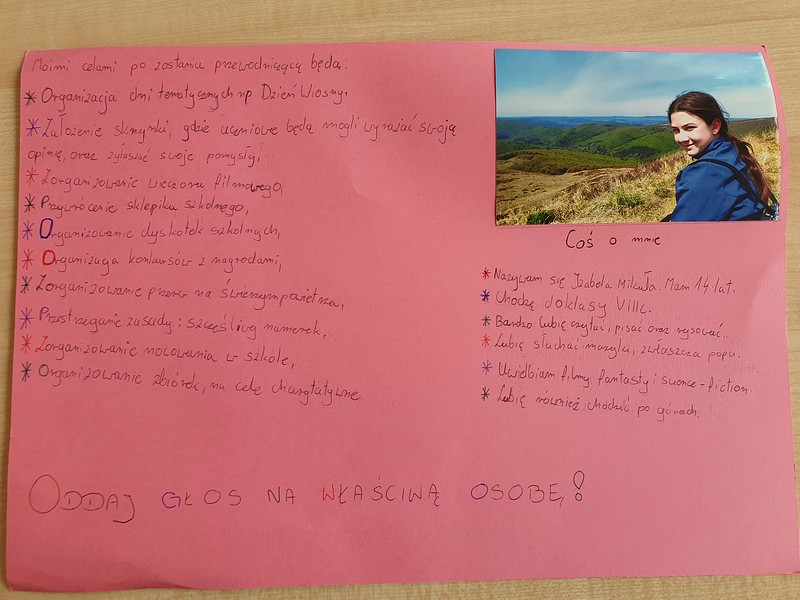 Moimi celami po zostaniu przewodniczącą będą:
* Organizacja dni tematycznych np Dzień Wiosny,
* Założenie skrzynki, gdzie uczniowie będą mogli wyrażać swoją
opinię, oraz zgłaszać swoje pomysły,
* Zorganizowanie wieczoru filmowego,
* Przywrócenie sklepiku szkolnego,
* Organizowanie dyskotek szkolnych,
* Organizacja konkursów z nagrodami,
* Zorganizowanie przerw na świeżym powietrzu,
* Przestrzeganie zasady: szczęśliwy numerek,
* Zorganizowanie nocowania w szkole,
* Organizowanie zbiórek, na cele charytatywne
Coś o mnie
* Nazywam się Izabela Mikuła. Mam 14 lat.
* Chodzę do klasy VIIIc.
* Bardzo lubię czytać, pisać oraz rysować.
* Lubię słuchać muzyki, zwłaszcza popu.
* Uwielbiam filmy fantasty i science-fiction.
* Lubię również chodzić po górach.
ODDAJ GŁOS NA WŁAŚCIWĄ OSOBĘ!